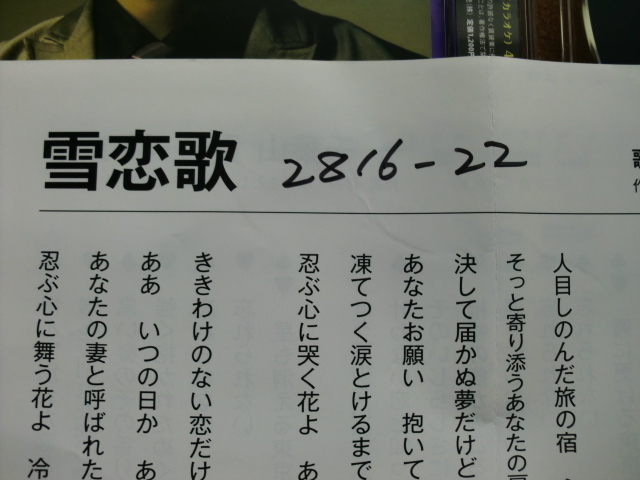 カラオケ）
定価1,204円
雪恋歌 2816-22
歌
作
人目しのんだ旅の宿
そっと寄り添うあなたの
決して届かぬ夢だけど
あなたお願い 抱いて
凍てつく涙とけるまで
忍ぶ心に哭く花よ あ
ききわけのない恋だけ
ああ いつの日か あ
あなたの妻と呼ばれた
忍ぶ心に舞う花よ 冷